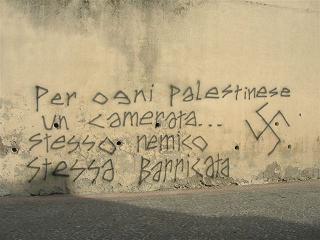 Per ogni palestinese
un camerata...
stesso nemico
stessa Barricata